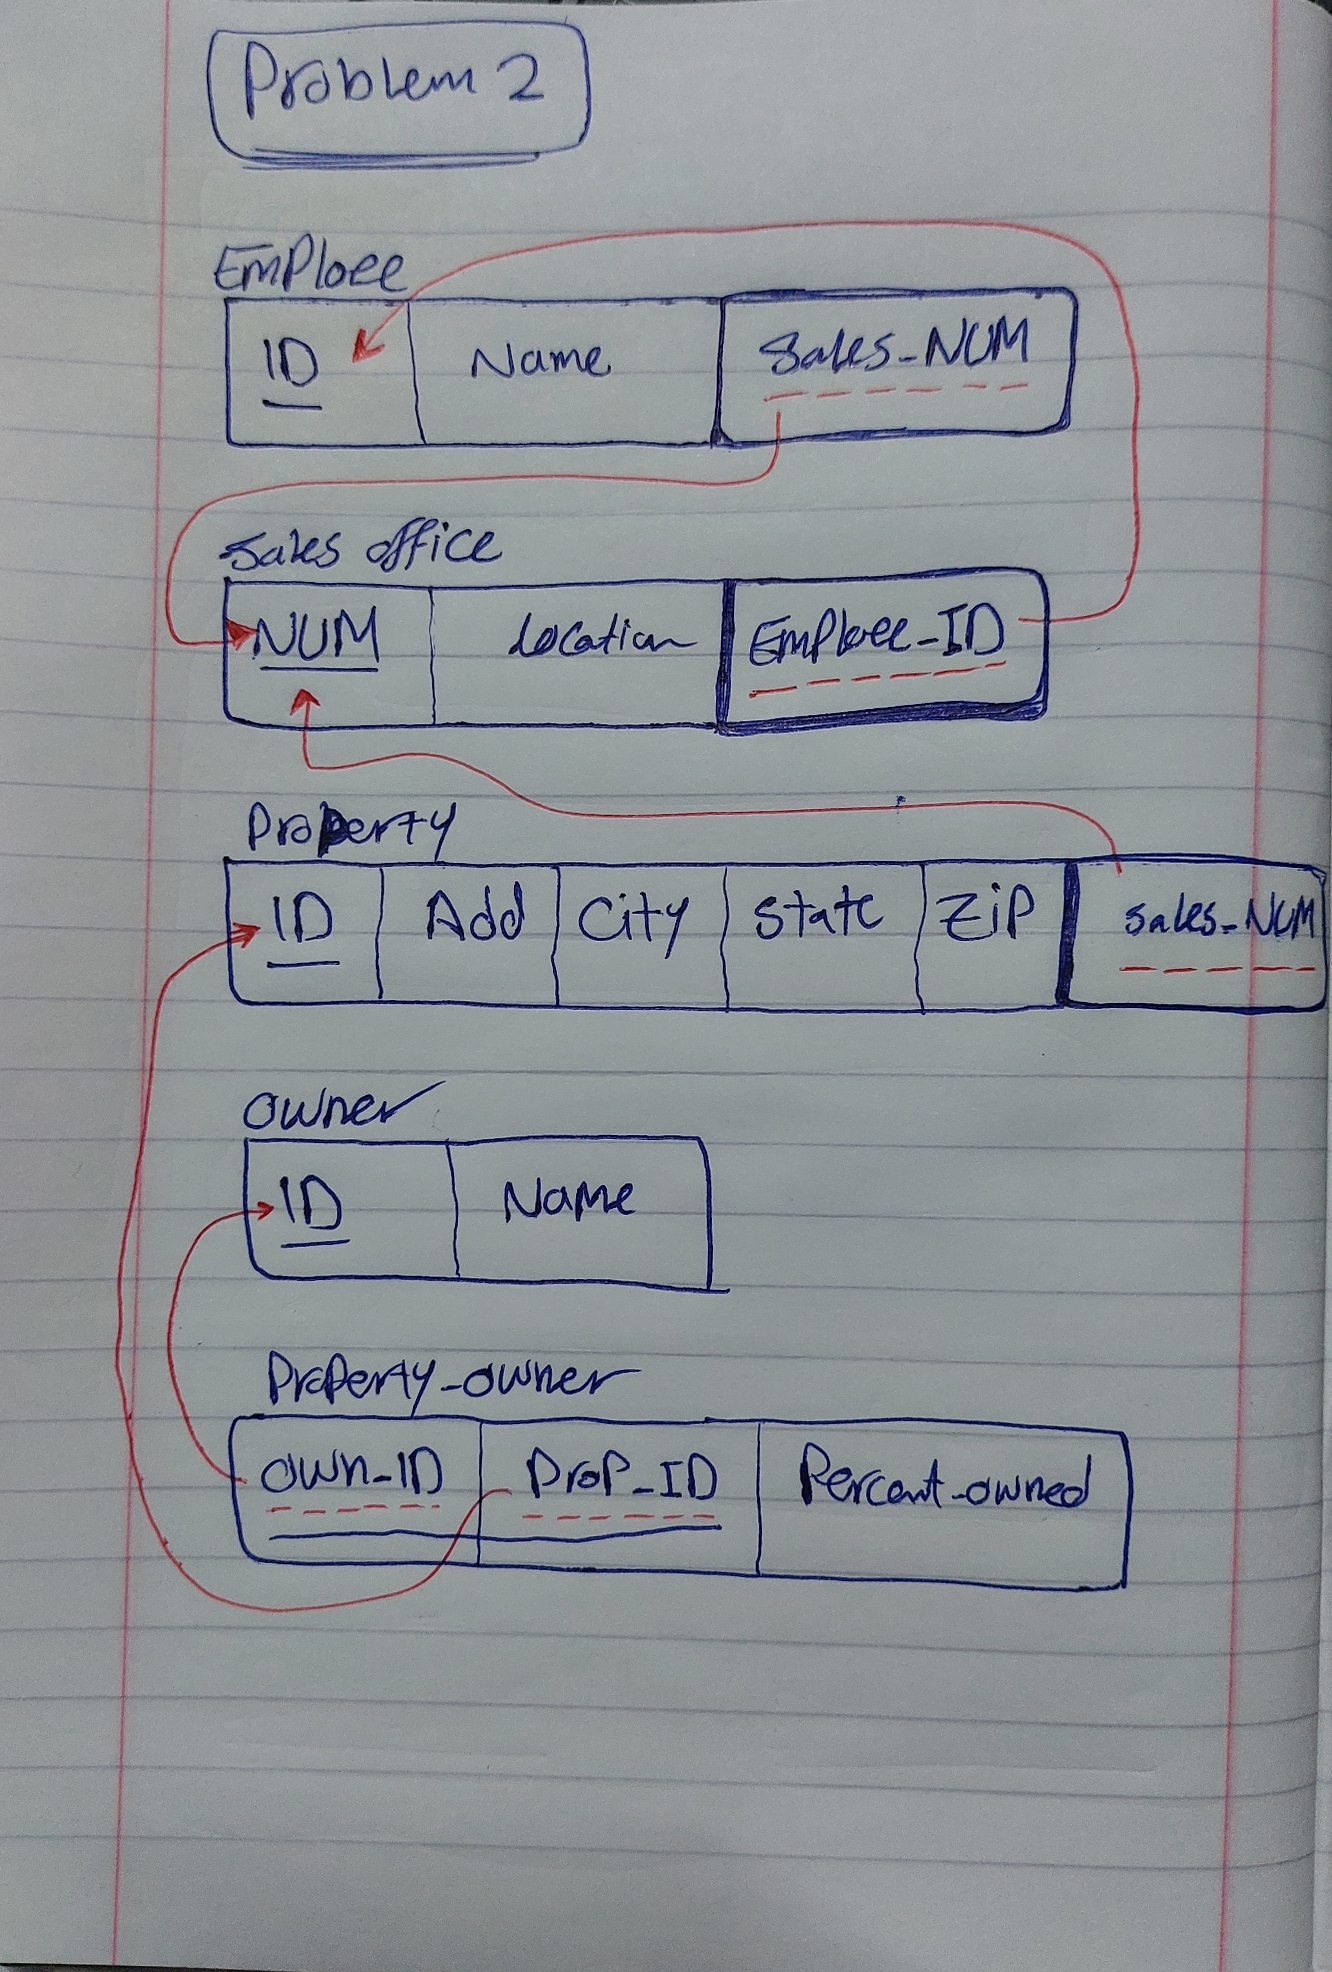 Problem 2
Emploee
ID Name Sales_NUM
Sales office
NUM Location Emploee_ID
Property
ID Add City State Zip Sales_NUM
Owner
ID Name
Property_owner
Own_ID Prop_ID Percent_owned